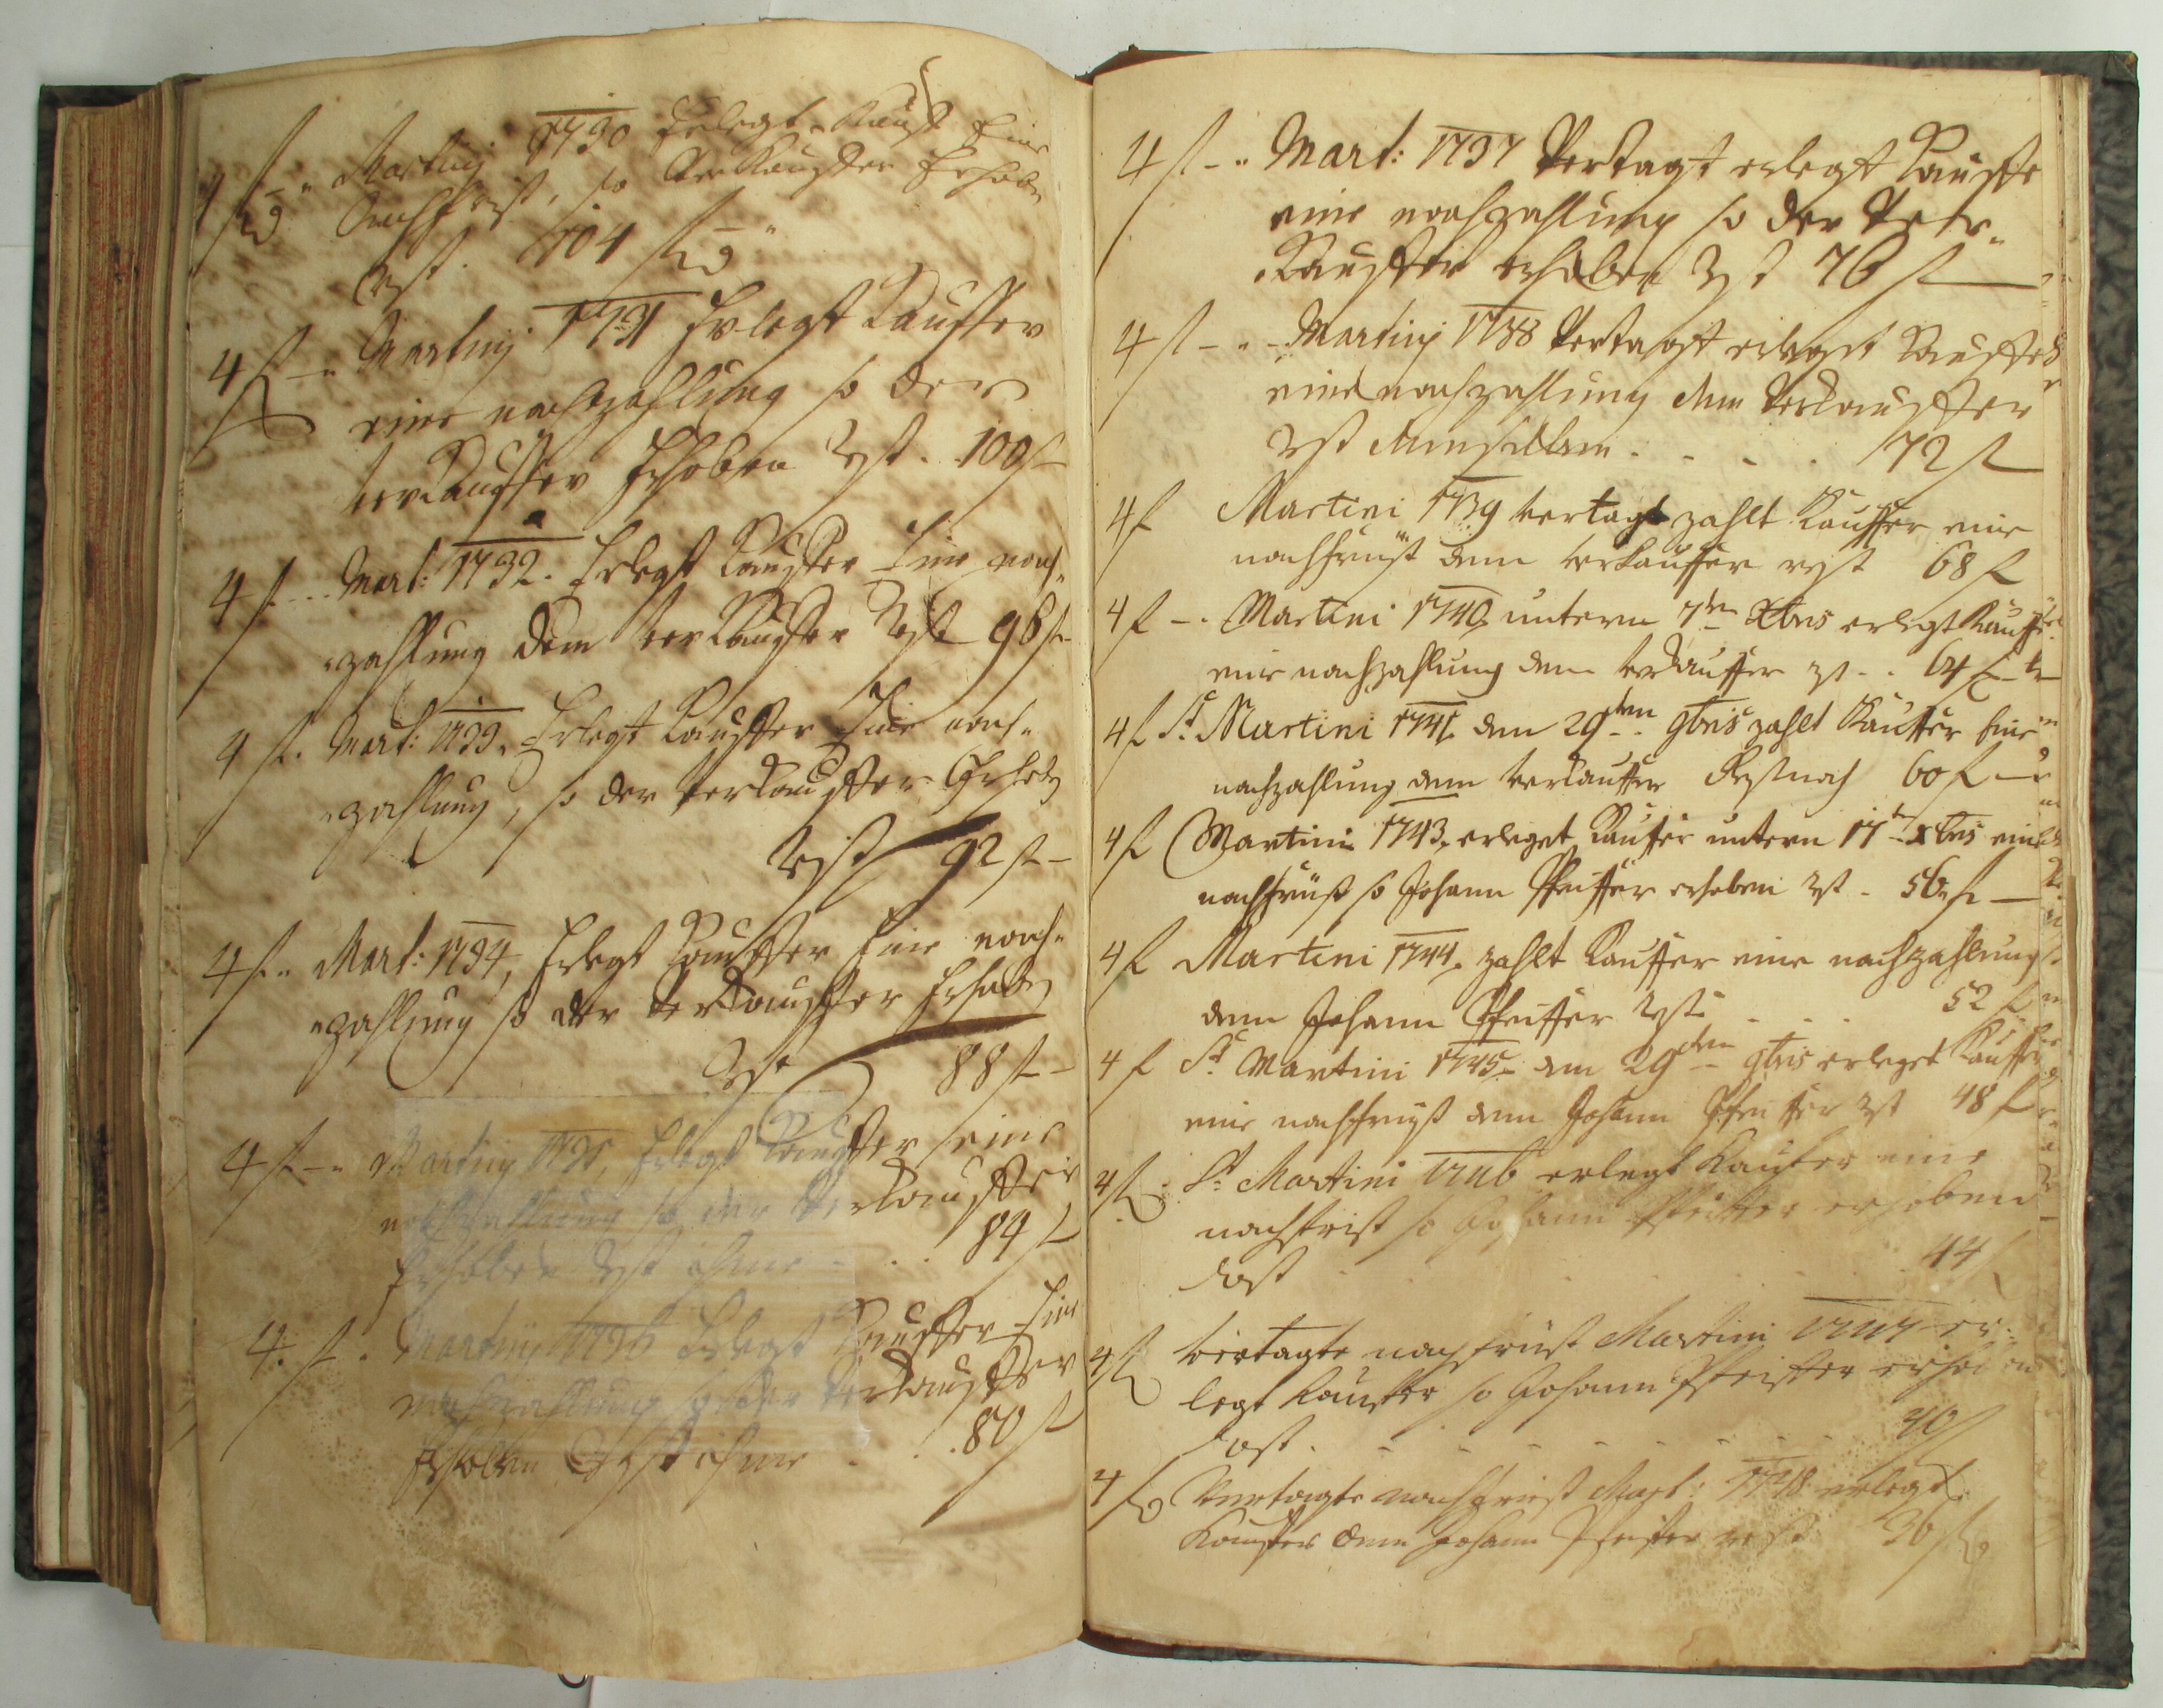 4 f Martinj 1730 Erlegt Kauffer Eine
Nachfrist, so Verkauffer Erhoben
Rest. 104 f
4 f – Martinj 1731 Erlegt Kauffer
eine nachzahlung so der
verkauffer Erhoben Rest. 100 f
4 f Mart: 1732. Erlegt Kauffer Eine nach-
zahlung dem verkauffer Rest 96 f
4 f. Mart: 1733. Erlegt Kauffer Eine nach-
zahlung, so der verkauffer Erhoben
Rest 92 f –
4 f. Mart: 1734, Erlegt Kauffer Eine nach-
zahlung so der verkauffer Erhoben
Rest 88 f –
4 f – Martinj 1735, Erlegt Kauffer eine
nachzahlung so der verkauffer
Erhoben Rest ihme . . 84 f
4. f. Martinj 1736 Erlegt Kauffer Eine
nachzahlung so der verkauffer
Erhoben Rest ihme . . 80 f
4 f – Mart: 1737 Vertagt erlegt Kauffer
eine nachzahlung so der Ver-
Kauffer erhoben Rest 76 f
4 f – Martinj 1738 Vertagt erlegt Kauffer
eine nachzahlung dem Verkauffer
Rest demselben . . . . 72 f
4 f Martini 1739 vertagt zahlt Kauffer eine
nachfrüst dem verkauffer rest 68 f
4 f – Martini 1740 unterm 7ten Xbris erlegt Kauffer
eine nachzahlung dem verkauffer rst . . 64 f
4 f St. Martini 1741. den 29ten 9bris zahlt Kauffer Eine
nachzahlung dem verkauffer Rest noch 60 f –
4 f Martini 1743. erleget Kauffer untern 17ten Xbris eine
nachfrüst so Johann Pfeiffer erhoben Rst . 56 f –
4 f Martini 1744. zahlt Kauffer eine nachzahlung
dem Johann Pfeiffer Rst: . . . 52 f
4 f St Martini 1745. den 29ten 9bris erleget Kauffer
eine nachfrist dem Johann Pfeiffer Rst 48 f
4 f St: Martini 1746 erlegt Kaufer eine
nachfrist so Johann Pfeiffer erhoben
Rest . . . . . . 44 f
4 f Vertagte nachfrüst Martini 1747 er-
legt Kauffer so Johann Pfeiffer erhoben
Rest . . . . . . 40 f
4 f Vertagte nachfriest Mart: 1748 erlegt
Kauffer dem Johann Pfeiffer rest 36 f